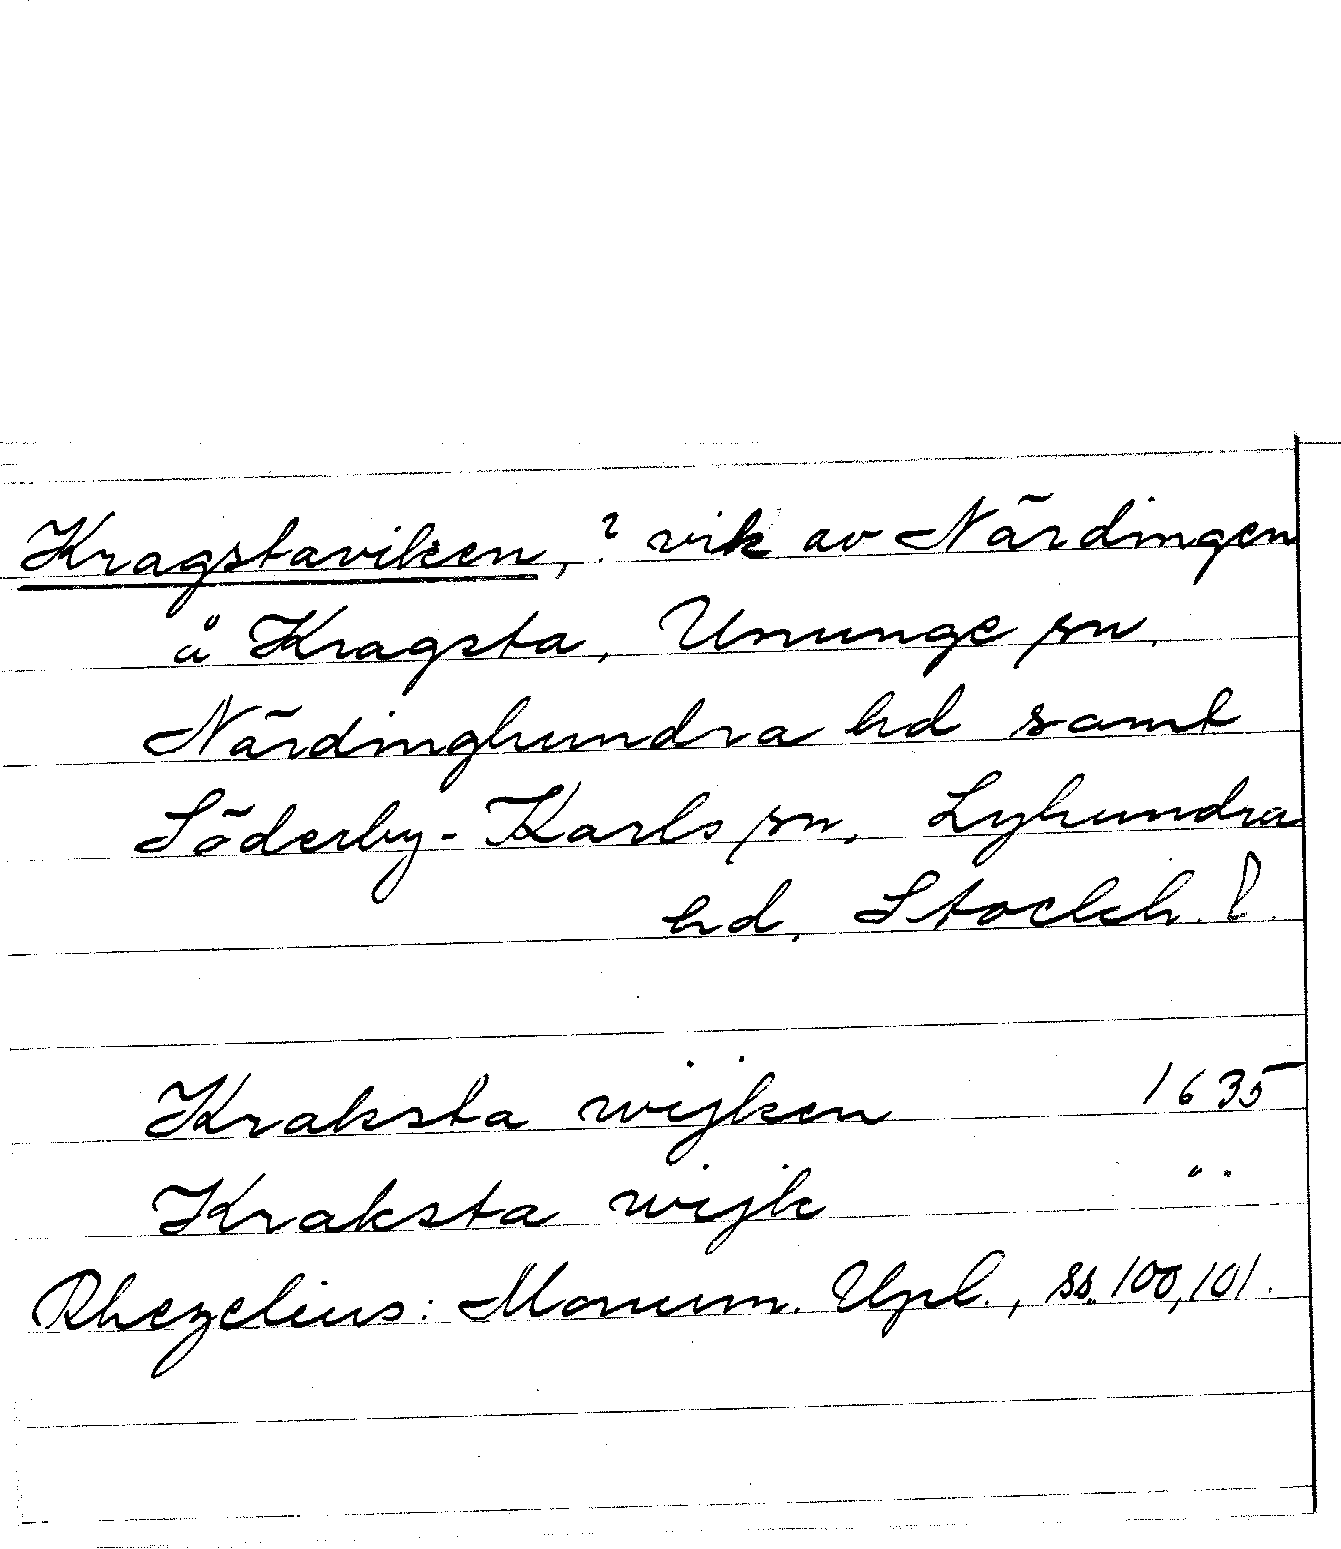 Kragstaviken, ? vik av Närdingen
å Kragsta, Ununge sn,
Närdinghundra hd samt
Söderby-Karls sn, Lyhundra
hd, Stockh. l.
Kraksta wijken 1635
Kraksta wijk "
Rhezelius: Monum. Upl., ss. 100, 101.